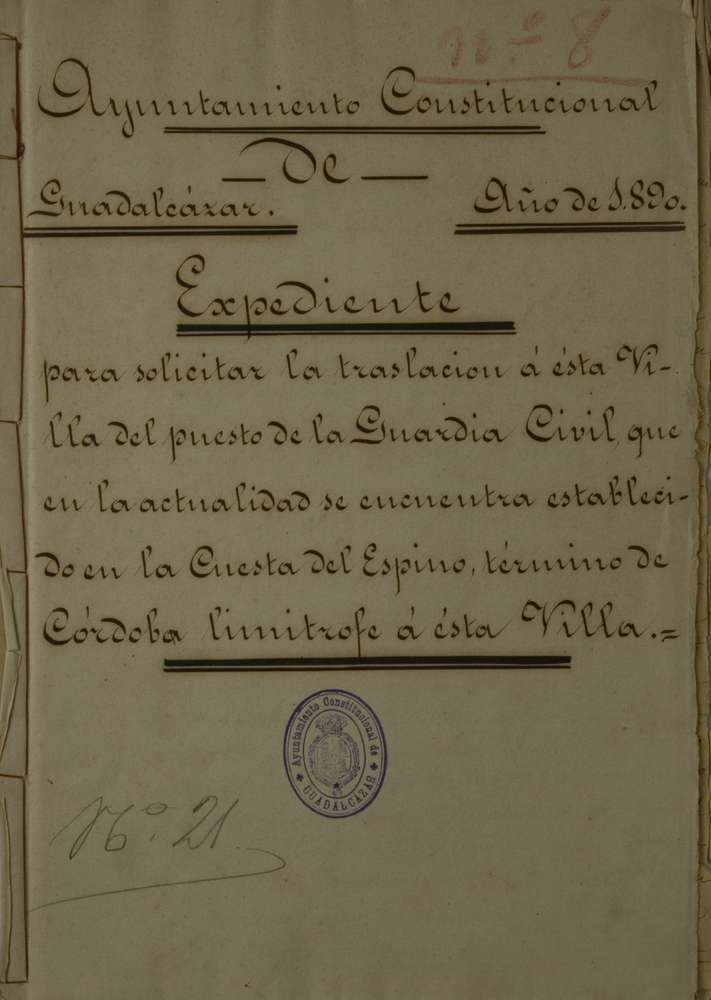 nº 8
Ayuntamiento Constitucional
— De —
Guadalcázar. Año de 1.890.
Expediente
para solicitar la traslacion á ésta Vi-
lla del puesto de la Guardia Civil, que
en la actualidad se encuentra estableci-
do en la Cuesta del Espino, término de
Córdoba limitrofe á ésta Villa.=
Ayuntamiento Constitucional de
GUADALCÁZAR
Nº. 21.